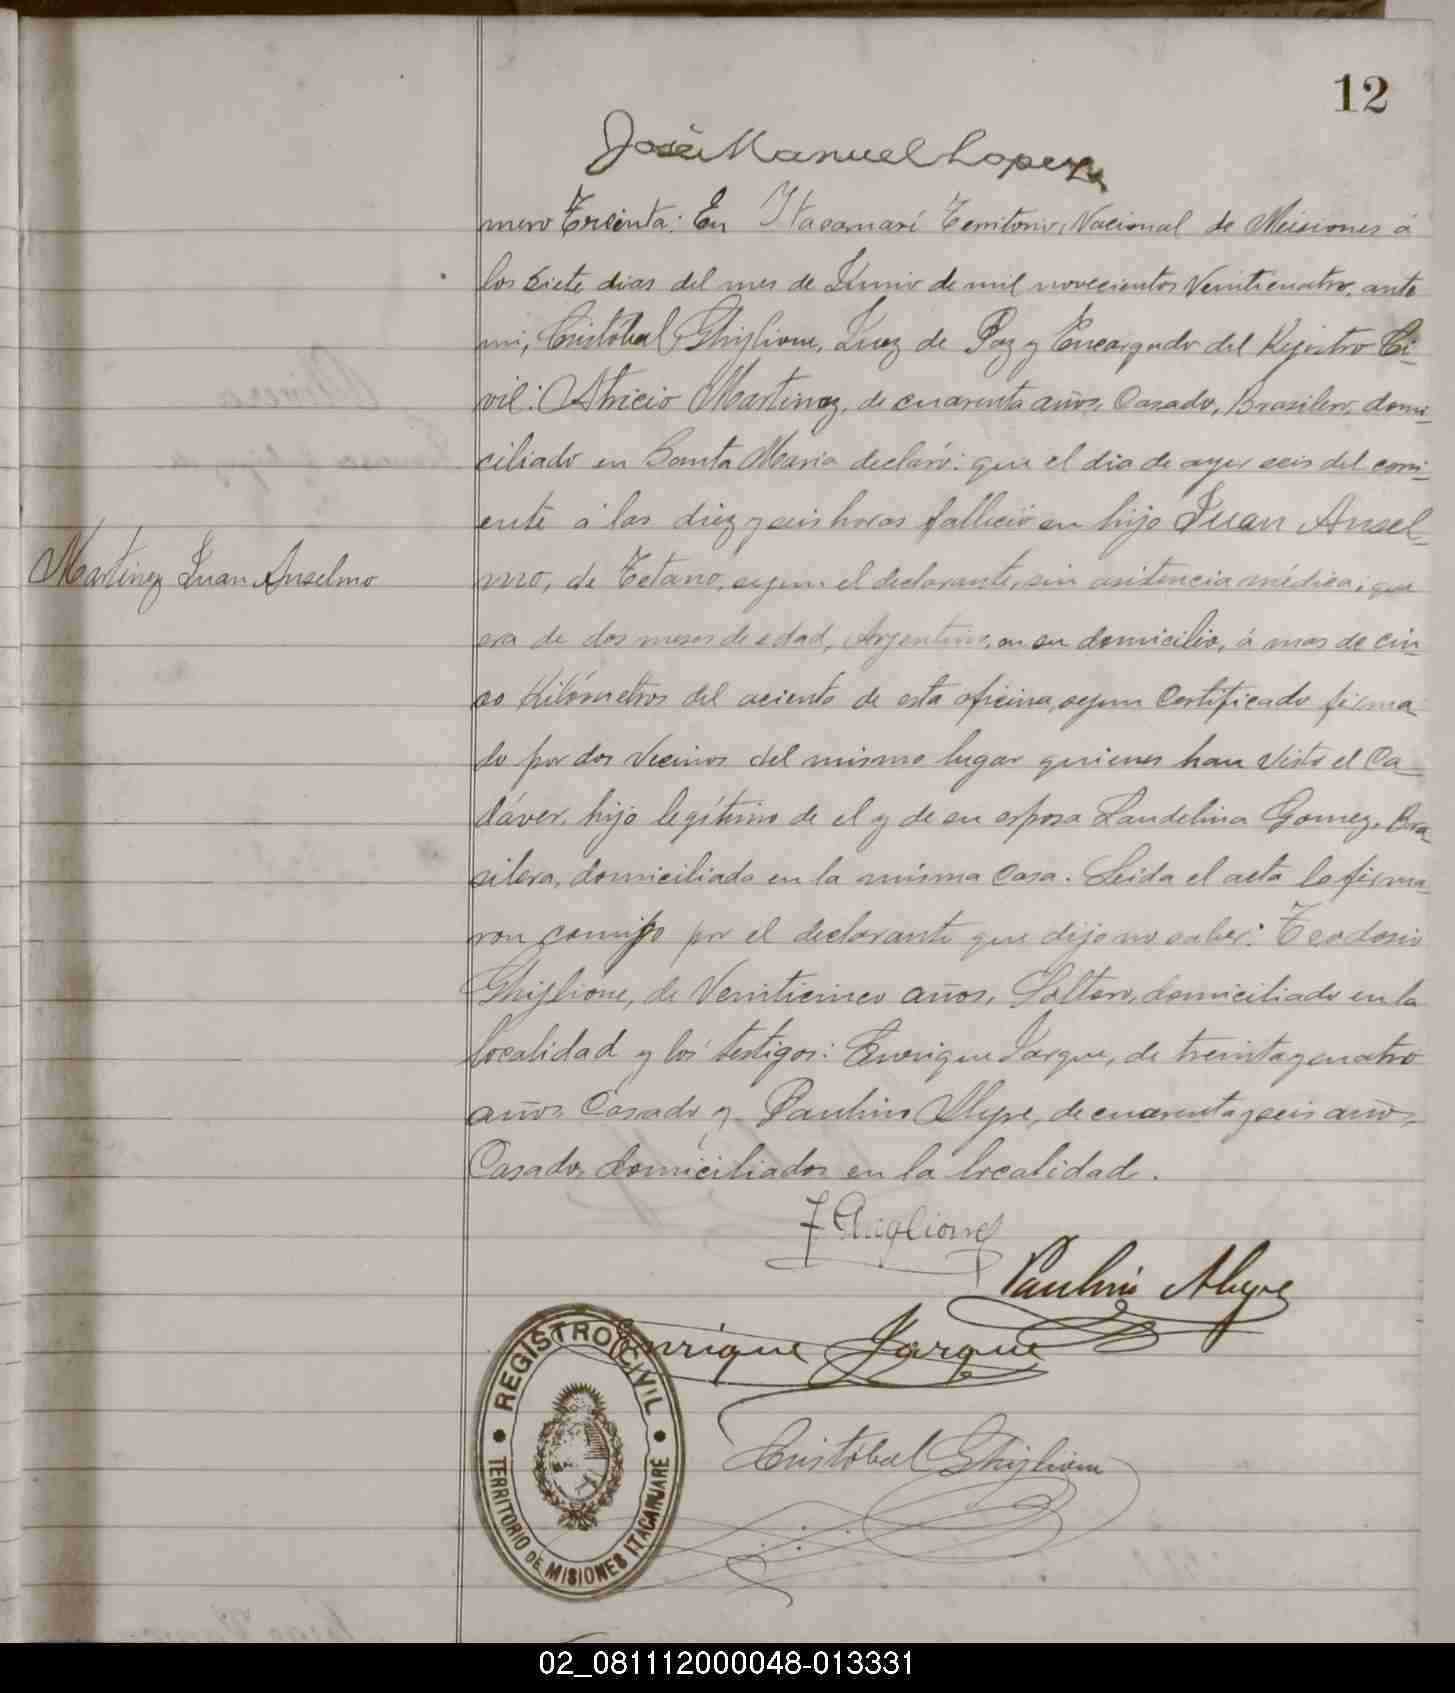 12
José Manuel Lopez
mero Treinta: En Itacaruaré Territorio Nacional de Misiones á
los siete dias del mes de Junio de mil novecientos veinticuatro, ante
mi, Cristóbal Ghiglione, Juez de Paz y Encargado del Registro Ci-
vil: Martinez, de cuarenta años, Casado, Brasilero, domi-
ciliado en Santa Maria declaró: que el dia de ayer seis del corri-
ente á las diez y seis horas falleció su hijo Juan Ansel-
Martinez Juan Anselmo
mo, de Tetano, segun el declarante, sin asitencia médica; que
era de dos meses de edad, Argentino, en su domicilio, á mas de cin-
co Kilómetros del aciento de esta oficina, segun Certificado firma
do por dos Vecinos del mismo lugar quienes han visto el Ca-
dáver, hijo legítimo de el y de su esposa Laudelina Gomez, Bra-
silera, domiciliada en la misma Casa. Leida el acta la firma-
ron conmigo por el declarante que dijo no saber: Teodosio
Ghiglione, de Veinticinco años, Soltero, domiciliado en la
localidad y los testigos: Enrique Jarque, de treinta y cuatro
años Casado y Paulino Alegre, de cuarenta y seis años,
Casado, domiciliados en la localidad.
T Ghiglione
Paulino Alegre
Enrique Jarque
Cristóbal Ghiglione
REGISTRO CIVIL
TERRITORIO DE MISIONES ITACARUARE
02_081112000048-013331